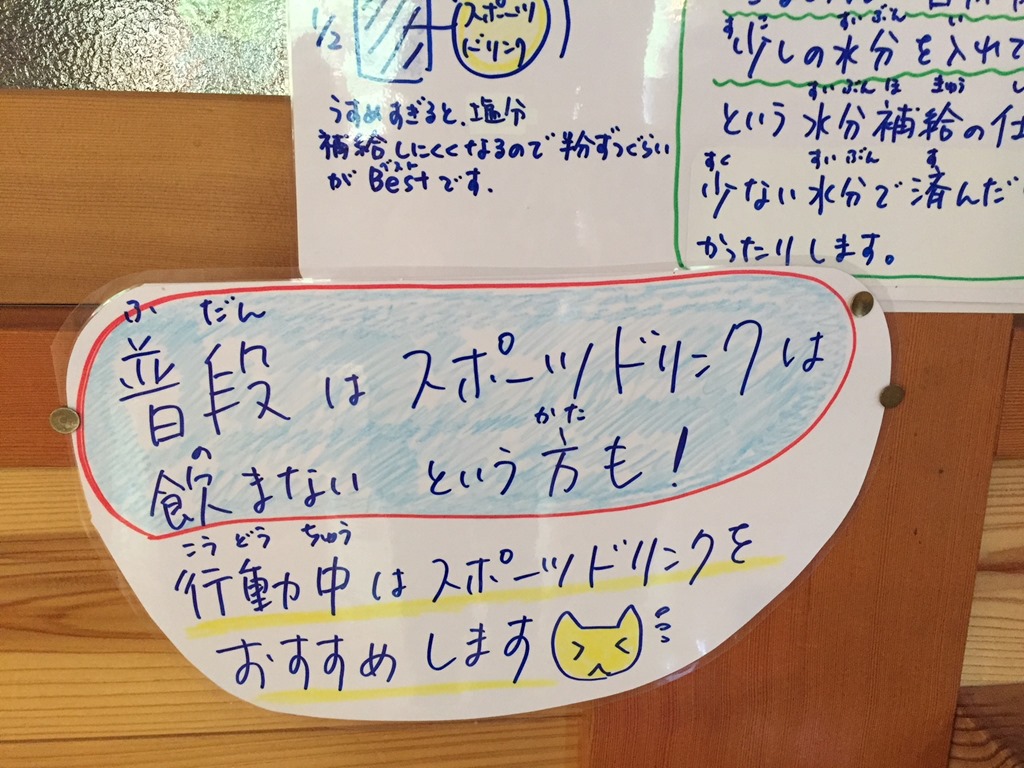 1/2
スポーツ
ドリンク
うすめすぎると、塩分
補給しにくくなるので半分ずつぐらい
ベスト
がBestです。
すこ すいぶん い
少しの水分を入れて
すいぶん ほ きゅう し
という水分補給の仕
すく すいぶん す
少ない水分で済んだ
かったりします。
ふ だん
普段はスポーツドリンクは
の かた
飲まないという方も!
こう どう ちゅう
行動中はスポーツドリンクを
おすすめします